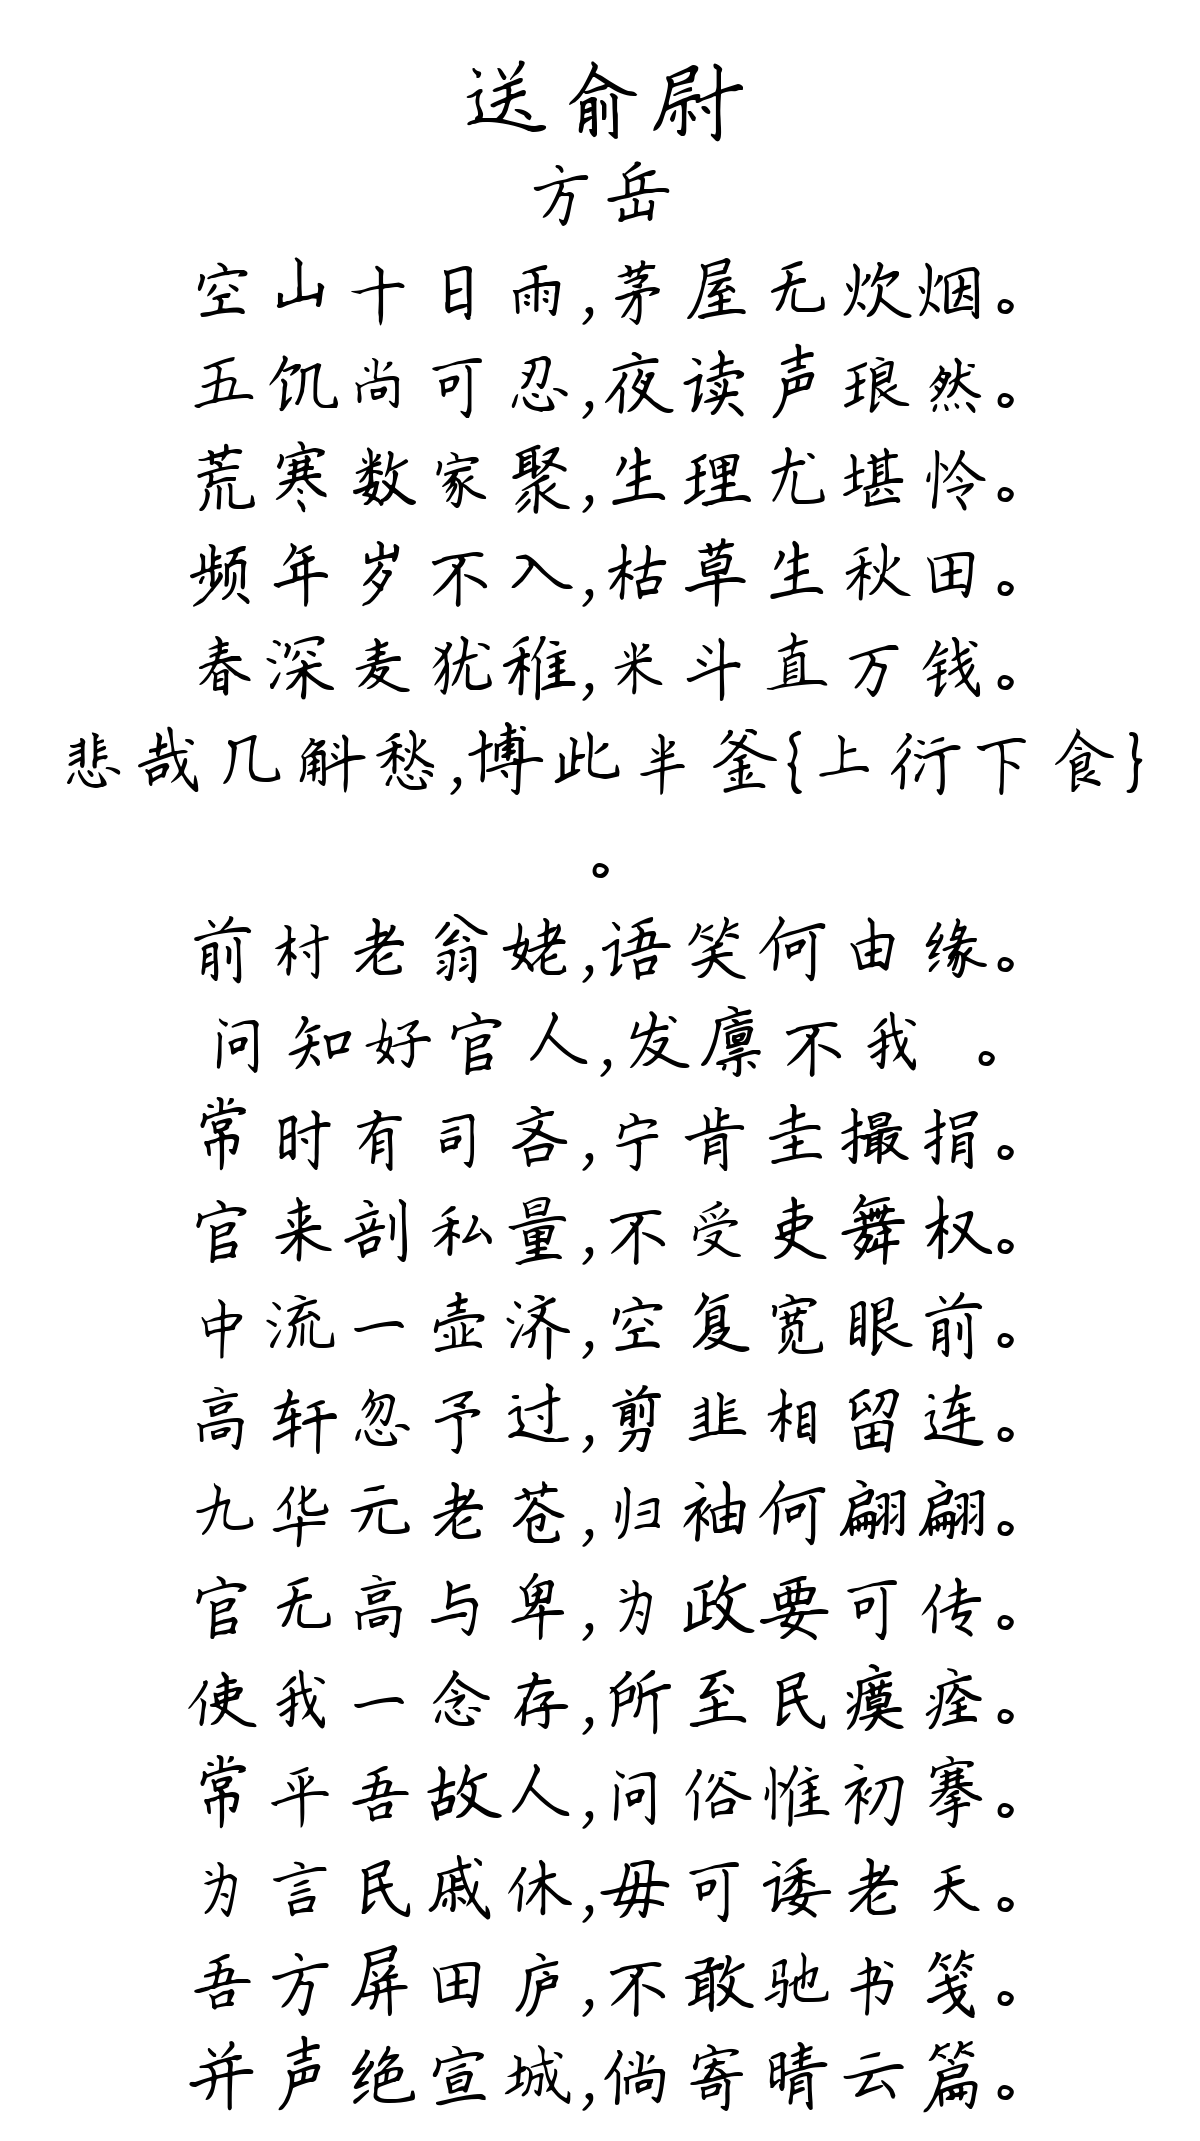 送俞尉
方岳
空山十日雨,茅屋无炊烟。
五饥尚可忍,夜读声琅然。
荒寒数家聚,生理尤堪怜。
频年岁不入,枯草生秋田。
春深麦犹稚,米斗直万钱。
悲哉几斛愁,博此半釜{上衍下食}
。
前村老翁姥,语笑何由缘。
问知好官人,发廪不我 。
常时有司吝,宁肯圭撮捐。
官来剖私量,不受吏舞权。
中流一壶济,空复宽眼前。
高轩忽予过,剪韭相留连。
九华元老苍,归袖何翩翩。
官无高与卑,为政要可传。
使我一念存,所至民瘼痊。
常平吾故人,问俗惟初搴。
为言民戚休,毋可诿老天。
吾方屏田庐,不敢驰书笺。
并声绝宣城,倘寄晴云篇。